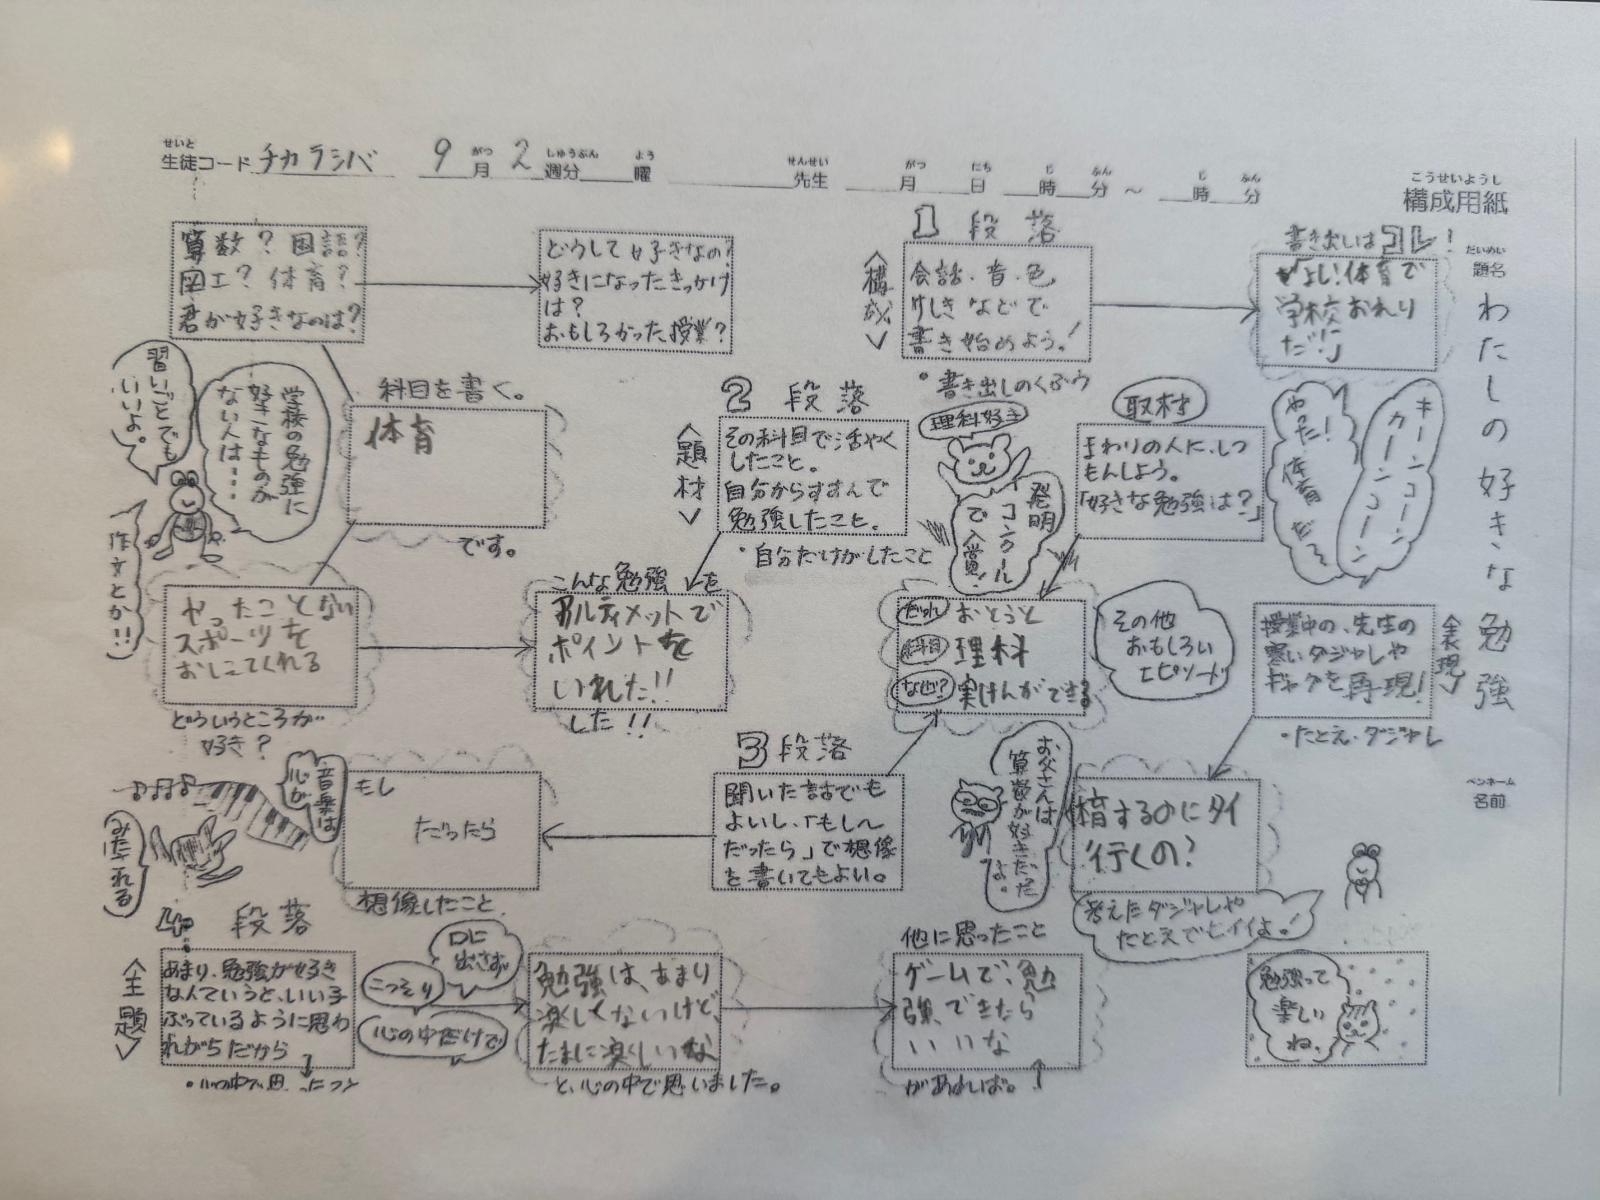 せいと
生徒コード チカラシバ 9月2週分 曜 先生 月 日 時 分 ～ 時 分
がつ しゅうぶん よう せんせい がつ にち じ ふん じ ふん
こうせいようし
構成用紙
だいめい
題名
わたしの好きな勉強
ペンネーム
名前
算数？国語？
図工？体育？
君が好きなのは？
どうして好きなの？
好きになったきっかけ
は？
おもしろかった授業？
1段落
〈構成〉
会話・音・色、
けしきなどで
書き始めよう！
・書き出しのくふう
書き出しはコレ！
「よし！体育で
学校おわり
だ！」
キーンコーン
カーンコーン
やった！
体育だ〜
習いごとでも
いいよ。
学校の勉強に
好きなものが
ない人は・・・・
作文とか!!
科目を書く。
体育
です。
2段落
〈題材〉
その科目で活やく
したこと。
自分からすすんで
勉強したこと。
・自分だけがしたこと
理科好き
発明
コンクール
で入賞！
取材
まわりの人に、しつ
もんしよう。
「好きな勉強は？」
やったことない
スポーツを
おしえてくれる
どういうところが
好き？
こんな勉強を
アルティメットで
ポイントを
いれた!!
した!!
だれ おとうと
科目 理科
なぜ？ 実けんができる
その他
おもしろい
エピソード
〈表現〉
授業中の、先生の
寒いダジャレや
ギャグを再現！
・たとえ・ダジャレ
音楽は
心が
みたされる
もし
だったら
想像したこと
3段落
聞いた話でも
よいし、「もし〜
だったら」で想像
を書いてもよい。
お父さんは
算数が好きだった
よ。
体育するのにタイ
行くの？
考えたダジャレや
たとえでヒイイよ！
4段落
〈主題〉
あまり、勉強が好き
なんていうと、いい子
ぶっているように思わ
れがちだから
口に
出さず
こっそり
心の中だけで
勉強は、あまり
楽しくないけど、
たまに楽しいな
と、心の中で思いました。
他に思ったこと
ゲームで、勉
強、できたら
いいな
があれば。
勉強って
楽しい
ね、